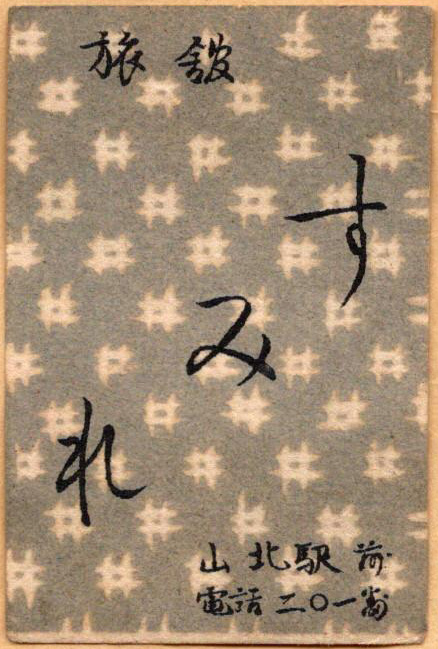 旅舘
すみれ
山北駅前
電話二〇一番